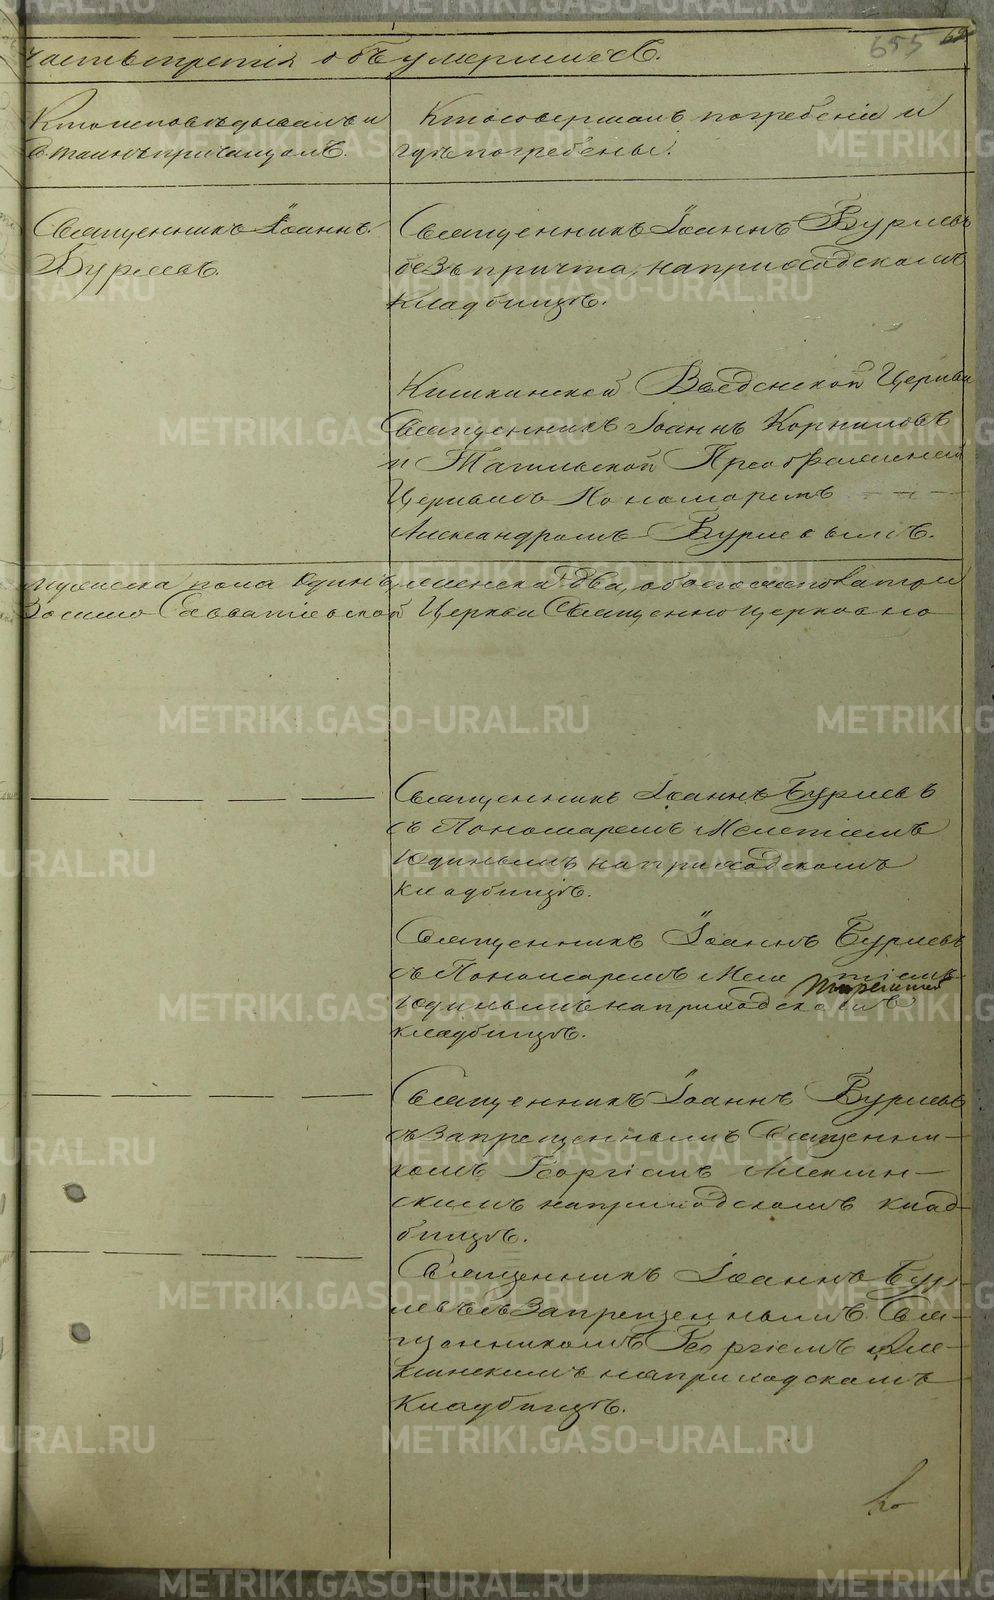 Часть третія объ умершихъ.
655
Кто исповѣдывалъ и
Кто совершалъ погребеніе и
гдѣ погребены.
Священникъ Іоаннъ
Бурлевъ.
Священникъ Іоаннъ Бурлевъ
безъ причта, на приходскомъ
кладбищѣ.
Кишкинской Введенской Церкви
Священникъ Іоаннъ Корниловъ
и Тагильской Преображенской
Церкви Пономаремъ
Александромъ Бурлевымъ.
мужеска пола одинъ, женска два, обоего
Зосимо Савватіевской Церкви Священно церковно
Священникъ Іоаннъ Бурлевъ
съ Пономаремъ Мелетіемъ
Юдинымъ на приходскомъ
кладбищѣ.
Священникъ Іоаннъ Бурлевъ
съ Пономаремъ Мелетіемъ
Юдинымъ на приходскомъ
кладбищѣ.
Священникъ Іоаннъ Бурлевъ
съ Запрещеннымъ Священни-
комъ Георгіемъ
на приходскомъ клад-
бищѣ.
Священникъ Іоаннъ Бур-
левъ съ Запрещеннымъ Свя-
щенникомъ Георгіемъ
на приходскомъ
Кладбищѣ.
METRIKI.GASO-URAL.RU